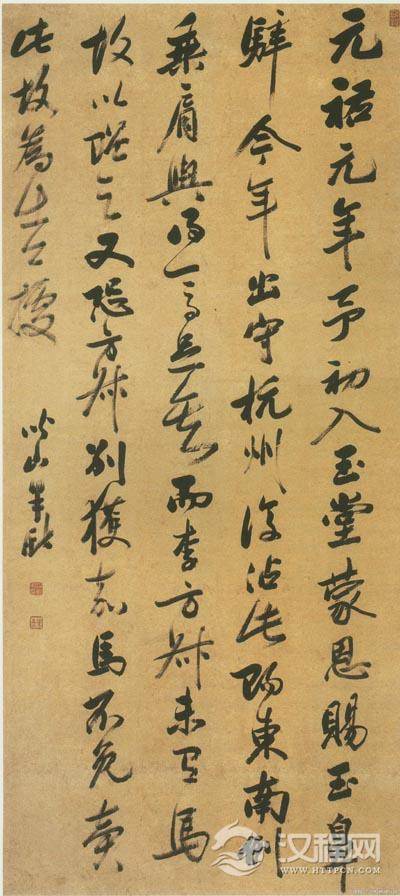 元祐元年予初入玉堂蒙恩賜玉鼻
騂今年出守杭州復沾此賜東南例
乘肩輿得一馬足矣而李方叔未有馬
故以贈之又恐方叔別獲嘉馬不免賣
此故為出公據
汉程网
HTTPCN.COM